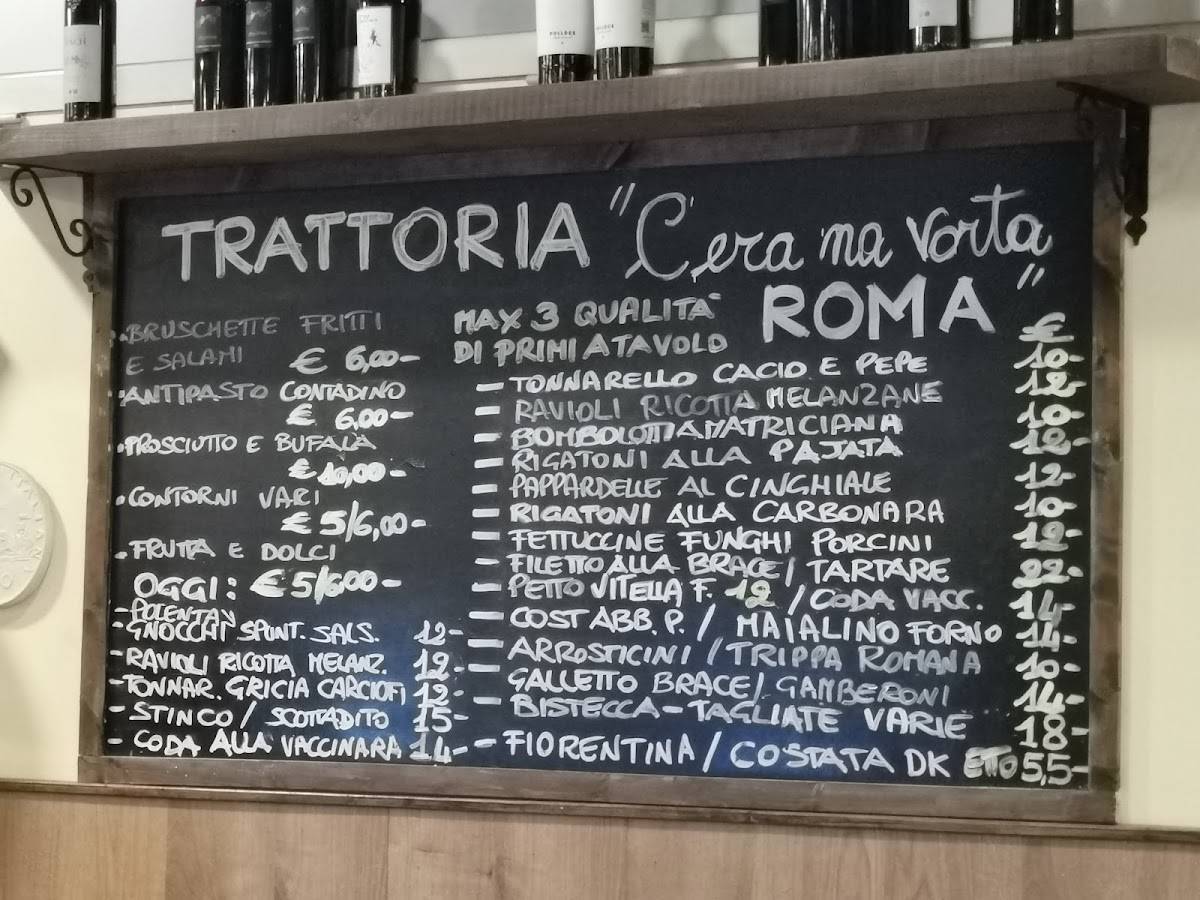 TRATTORIA "C'era 'na vorta
ROMA"
•BRUSCHETTE FRITTI
E SALAMI € 6,00-
•ANTIPASTO CONTADINO
€ 6,00-
•PROSCIUTTO E BUFALA
€ 10,00-
•CONTORNI VARI
€ 5/6,00-
•FRUTTA E DOLCI
OGGI: € 5/6,00-
-POLENTA
GNOCCHI SPUNT. SALS. 12-
-RAVIOLI RICOTTA MELANZ. 12-
-TONNAR. GRICIA CARCIOFI 12-
-STINCO / SCOTTADITO 15-
- CODA ALLA VACCINARA 14-
MAX 3 QUALITA'
DI PRIMI A TAVOLO
€
- TONNARELLO CACIO E PEPE 10-
- RAVIOLI RICOTTA MELANZANE 12-
- BOMBOLOTTI AMATRICIANA 10-
- RIGATONI ALLA PAJATA 12-
- PAPPARDELLE AL CINGHIALE 12-
- RIGATONI ALLA CARBONARA 10-
- FETTUCCINE FUNGHI PORCINI 12-
- FILETTO ALLA BRACE / TARTARE 22-
- PETTO VITELLA F. 12 / CODA VACC. 14-
- COST ABB. P. / MAIALINO FORNO 14-
- ARROSTICINI / TRIPPA ROMANA 10-
- GALLETTO BRACE / GAMBERONI 14-
- BISTECCA - TAGLIATE VARIE 18-
- FIORENTINA / COSTATA DK ETTO 5,5-